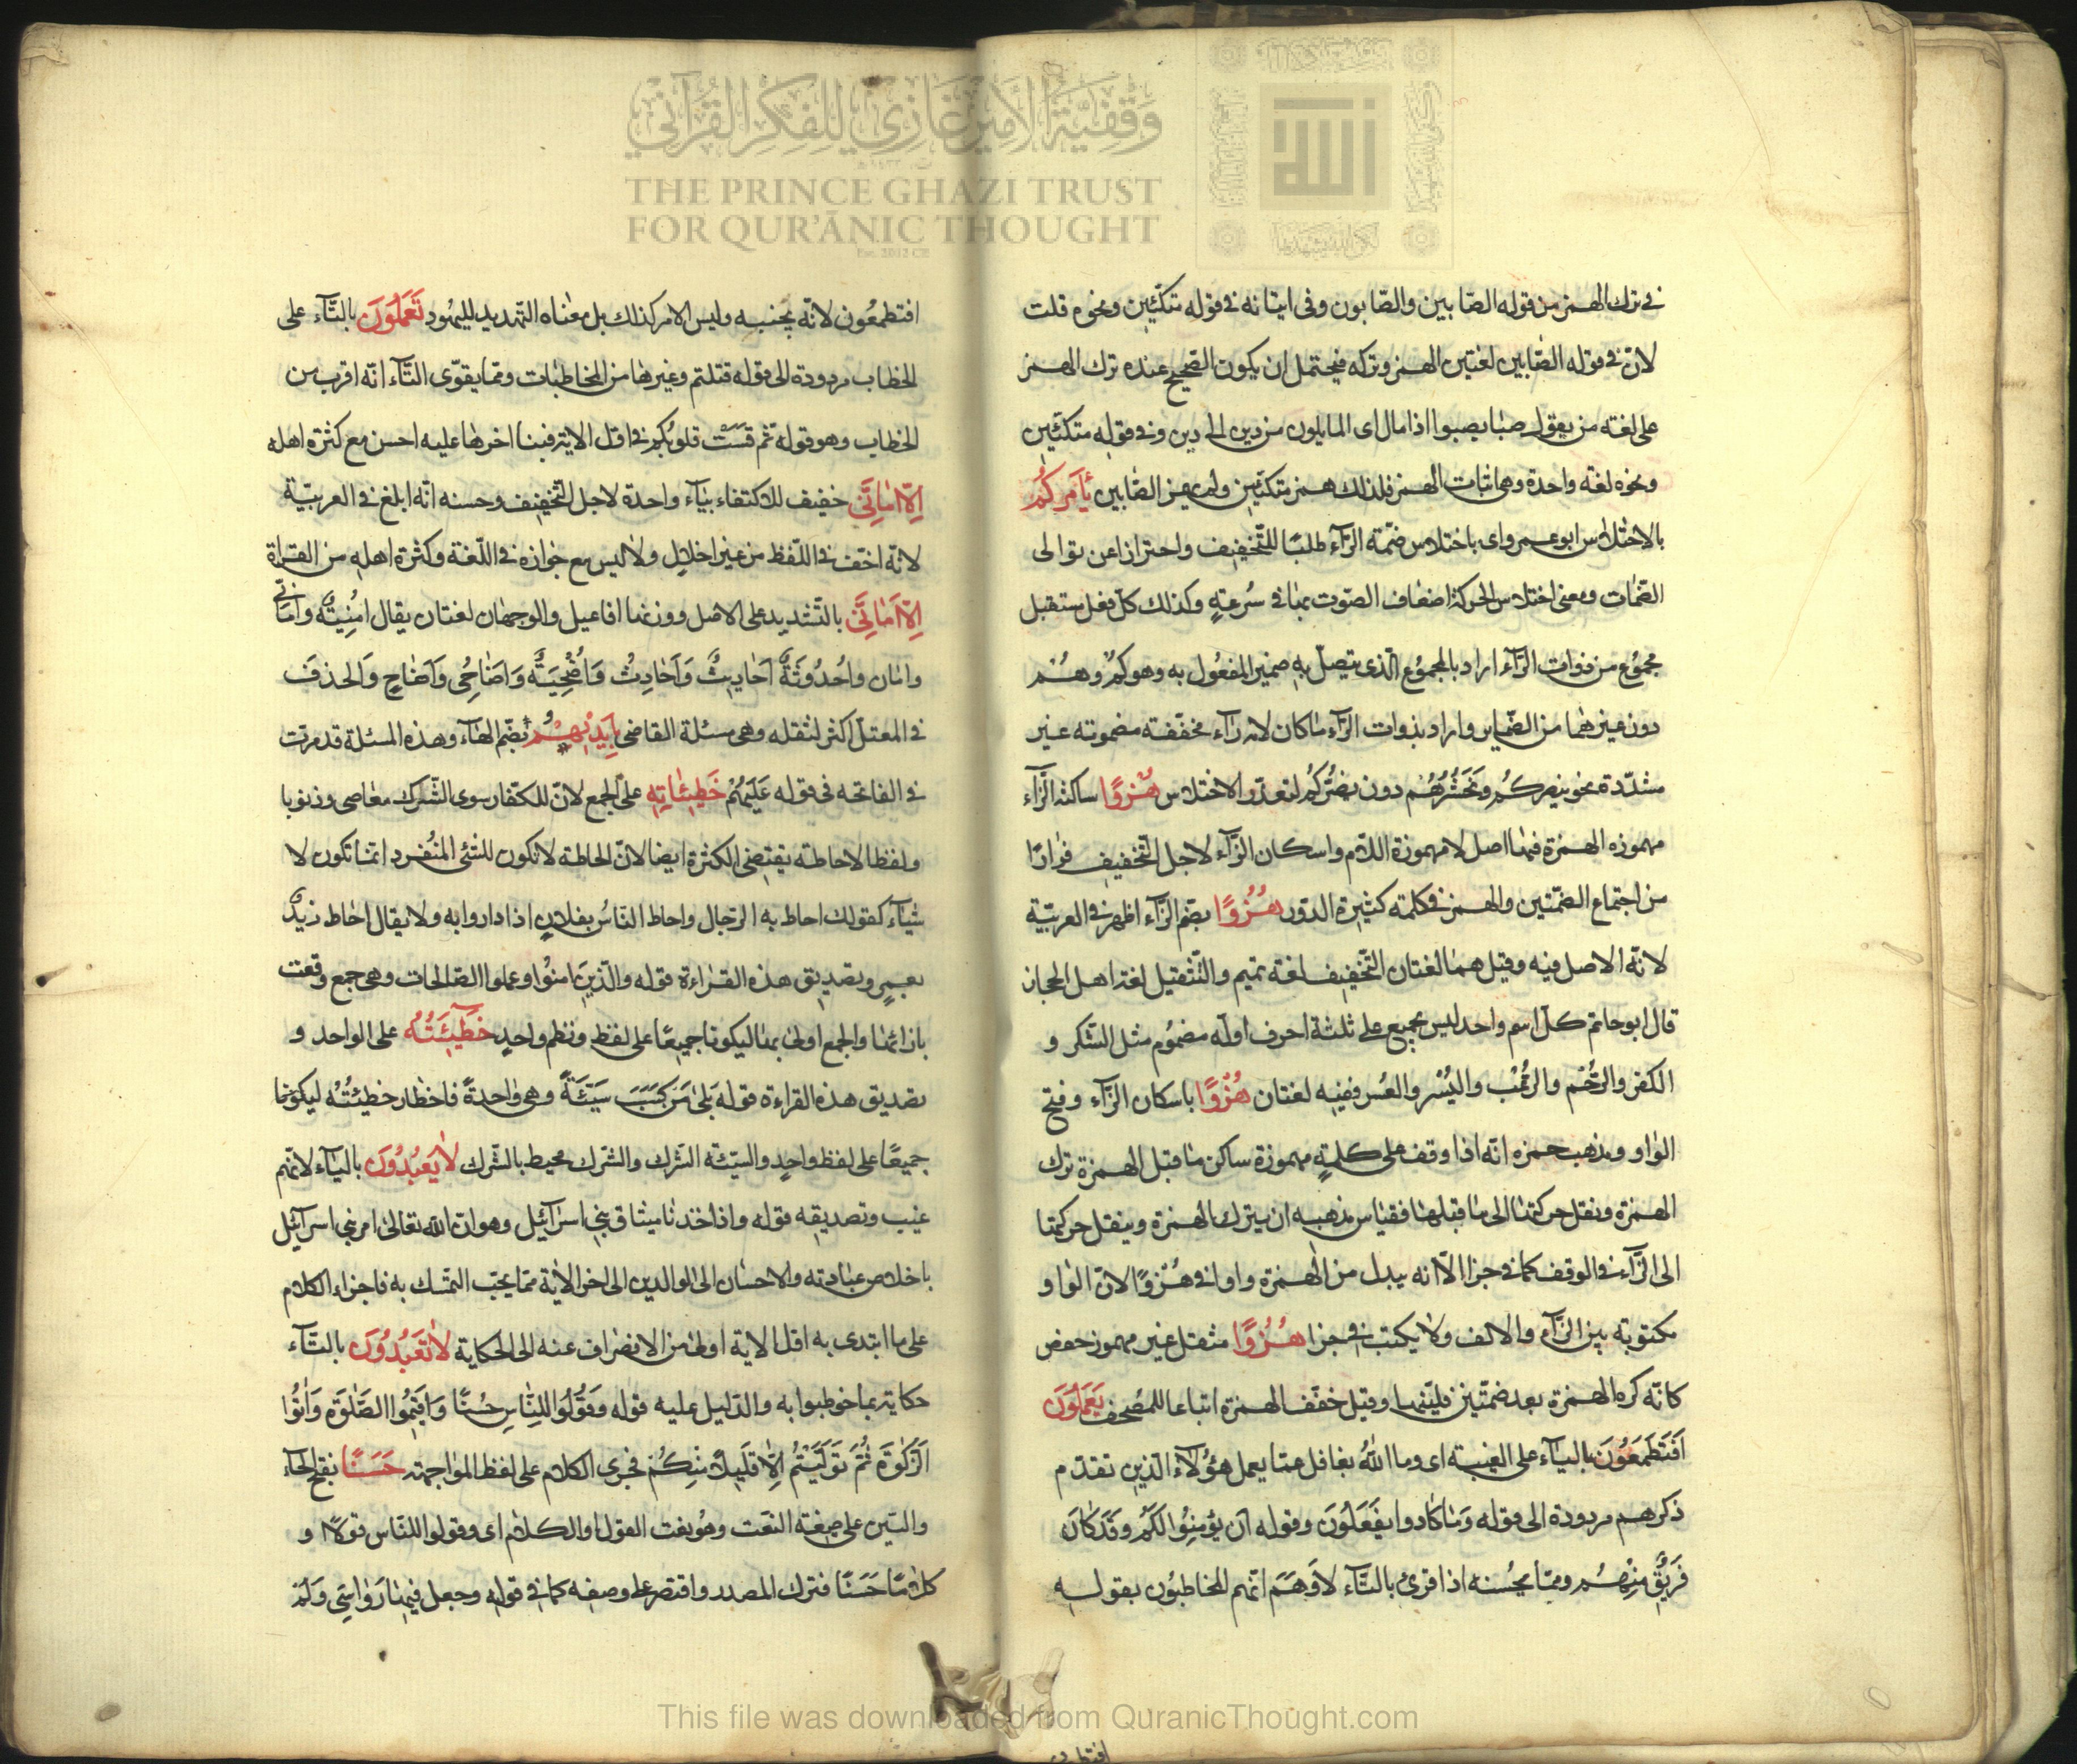 وقفية الأمير غازي للفكر القرآني
THE PRINCE GHAZI TRUST
FOR QUR'ĀNIC THOUGHT
Est. 2012 CE
في ترك الهمز من قوله الصابين والصابون وفي اتيانه في قوله متكئين ونحوه قلت
لان في قوله الصابين لغتين الهمز وتركه فيحتمل ان يكون الصحيح عنده ترك الهمز
على لغته من يقول صبا يصبوا اذا مال اى المايلون من دين الى دين وفي قوله متكئين
ونحوه لغة واحدة وهى اثبات الهمز فلذلك همز متكئين ولم يهمز الصابين يأمركم
بالاختلاس ابو عمرو اى باختلاس ضمة الرآء طلبا للتخفيف واحترازا عن توالى
الضمات ومعنى اختلاس الحركة اضعاف الصوت بها في سرعة وكذلك كل فعل مستقبل
مجموع من ذوات الرآء اراد بالمجموع الذى يتصل به ضمير المفعول به وهو كم وهم
دون غيرهما من الضماير واراد بذوات الرآء ما كان لامه رآء مخففة مضمومة غير
مشددة نحو ينصركم ونحشرهم دون يضركم لتعذر الاختلاس هزؤا ساكنة الزآء
مهموزه الهمزة فيها اصل لا مهموزة اللام واسكان الزآء لاجل التخفيف فرارا
من اجتماع الضمتين والهمز في كلمة كثيرة الدور هزؤا بضم الزآء اظهر في العربية
لانه الاصل فيه وقيل هما لغتان التخفيف لغة تميم والتثقيل لغة اهل الحجاز
قال ابو حاتم كل اسم واحد ليس بجميع على ثلثة احرف اوله مضموم مثل الشكر و
الكفر والرحم والرعب واليسر والعسر ففيه لغتان هزوا باسكان الزآء وفتح
الواو ومذهب حمزه انه اذا وقف على كلمة مهموزة ساكن ما قبل الهمزة ترك
الهمزة ونقل حركتها الى ما قبلها فقياس مذهبه ان يترك الهمزة وينقل حركتها
الى الزآء في الوقف كما في جزا الا انه يبدل من الهمزة واوا في هزوا لان الواو
مكتوبة بين الزآء والالف ولا يكتب في جزا هزوا مثقل غير مهموز حفص
كانه كره الهمزة بعد ضمتين فلينها وقيل خفف الهمزة اتباعا للمصحف يعملون
افتطمعون بالياء على الغيبة اى وما الله بغافل عما يعمل هؤلاء الذين تقدم
ذكرهم مردودة الى قوله وما كادوا يفعلون وقوله ان يؤمنوا لكم وقد كان
فريق منهم ومما يحسنه اذا قرئ بالتاء لاوهم انهم المخاطبون بقوله
افتطمعون لانه بجنبه وليس الامر كذلك بل معناه التهديد لليهود تعملون بالتاء على
الخطاب مردودة الى قوله قتلتم وغيرها من المخاطبات ومما يقوى التاء انه اقرب من
الخطاب وهو قوله ثم قست قلوبكم في اول الاية فبنا اخرها عليه احسن مع كثرة اهله
الا امانى خفيف للاكتفاء بياء واحدة لاجل التخفيف وحسنه انه ابلغ في العربية
لانه اخف في اللفظ من غير اخلال ولا لبس مع جوازه في اللغة وكثرة اهله من القراة
الا امانى بالتشديد على الاصل ووزنها افاعيل والوجهان لغتان يقال امنية وامانى
وامان واحدوثة احاديث واحادث واضحية واضاحى واضاح والحذف
في المعتل اكثر لثقله وهى مسئلة القاضى بايديهم بضم الهاء وهذه المسئلة قد مرت
في الفاتحه في قوله عليهم خطيئاته على الجمع لان للكفار سوى الشرك معاصى وذنوبا
ولفظ الاحاطة يقتضى الكثرة ايضا لان الحاطة لا تكون للشئ المنفرد انما تكون لا
شياء كقولك احاط به الرجال واحاط الناس بفلان اذا داروا به ولا يقال احاط زيد
بعمرو وتصديق هذه القراءة قوله والذين امنوا وعملوا الصالحات وهى جمع وقعت
بازائها والجمع اولى بها ليكونا جميعا على لفظ ونظم واحد خطيئته على الواحد و
تصديق هذه القراءة قوله بلى من كسب سيئة وهى واحدة فاحطار خطيئته ليكونا
جميعا على لفظ واحد والسيئة الشرك والشرك محيط بالشرك لا يعبدون بالياء لانهم
غيب وتصديقه قوله واذ اخذنا ميثاق بنى اسرآئيل وهو ان الله تعالى امر بنى اسرآئيل
باخلاص عبادته والاحسان الى الوالدين الى اخر الاية مما يجب التمسك به فاجراء الكلام
على ما ابتدى به اول الاية اولى من الانصراف عنه الى الحكاية لا تعبدون بالتاء
حكاية عما خوطبوا به والدليل عليه قوله وقولوا للناس حسنا واقيموا الصلوة واتوا
الزكوة ثم توليتم الا قليلا منكم فجرى الكلام على لفظ المواجهة حسنا بفتح الحاء
والسين على صيغة النعت وهو نعت القول او الكلام اى وقولوا للناس قولا و
كلاما حسنا فترك المصدر واقتصر على وصفه كما في قوله وجعل فيها رواسى ولم
This file was downloaded from QuranicThought.com